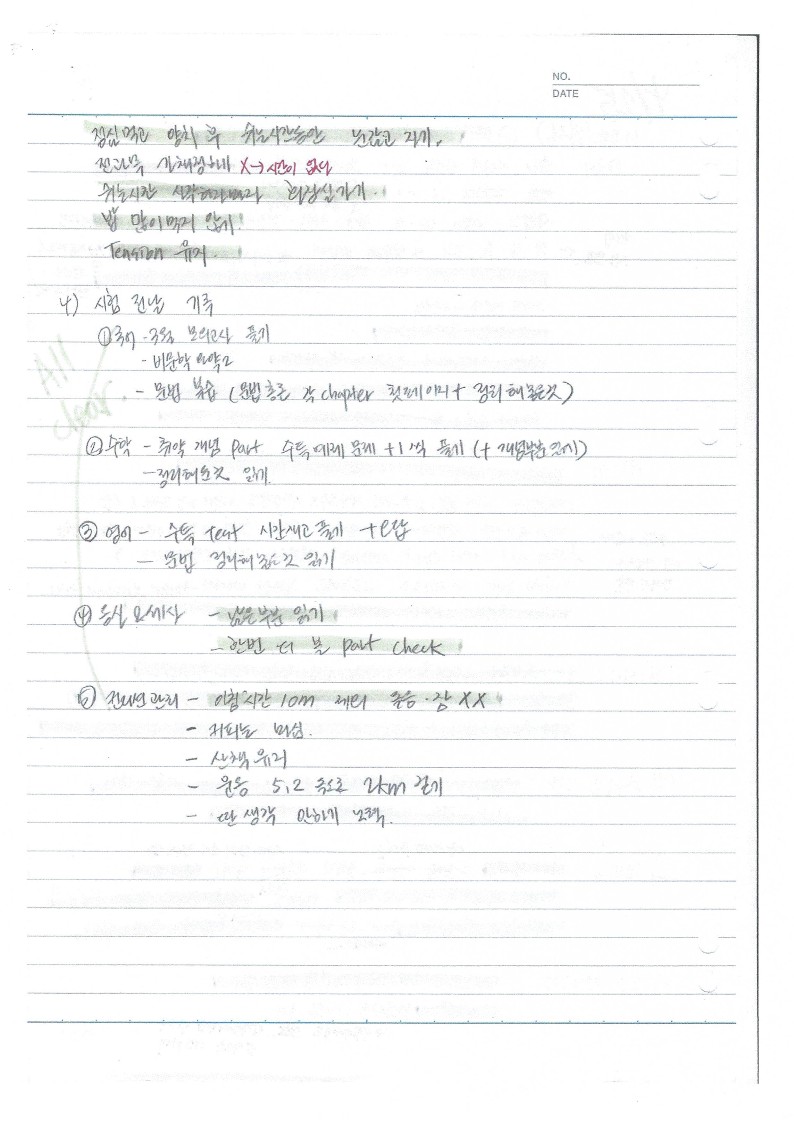 NO.
DATE
점심먹고 양치 후 쉬는시간동안 눈감고 자기.
전과목 가채점하기 X→시간이 없다
쉬는시간 시작하자마자 화장실가기.
밥 많이먹지 않기.
Tension 유지.
4) 시험 전날 기록
①국어 - 모의고사 풀기
- 비문학 요약 2
- 문법 복습 (문법 각 chapter 첫페이지 + 정리해놓은것)
All clear.
②수학 - 취약 개념 part 수특 예제 문제 +1 씩 풀기 (+ 개념부분 읽기)
- 정리해놓은것 읽기.
③ 영어 - 수특 test 시간재고 풀기 +오답
- 문법 정리해놓은것 읽기
④ - 넓은부분 읽기
- 한번 더 볼 part check
⑤ 컨디션관리 - 아침시간 10m 제외 졸음·잠 XX
- 커피는
- 산책 유지
- 운동 5.2 속도로 2km 걷기
- 딴 생각 안하기 노력.